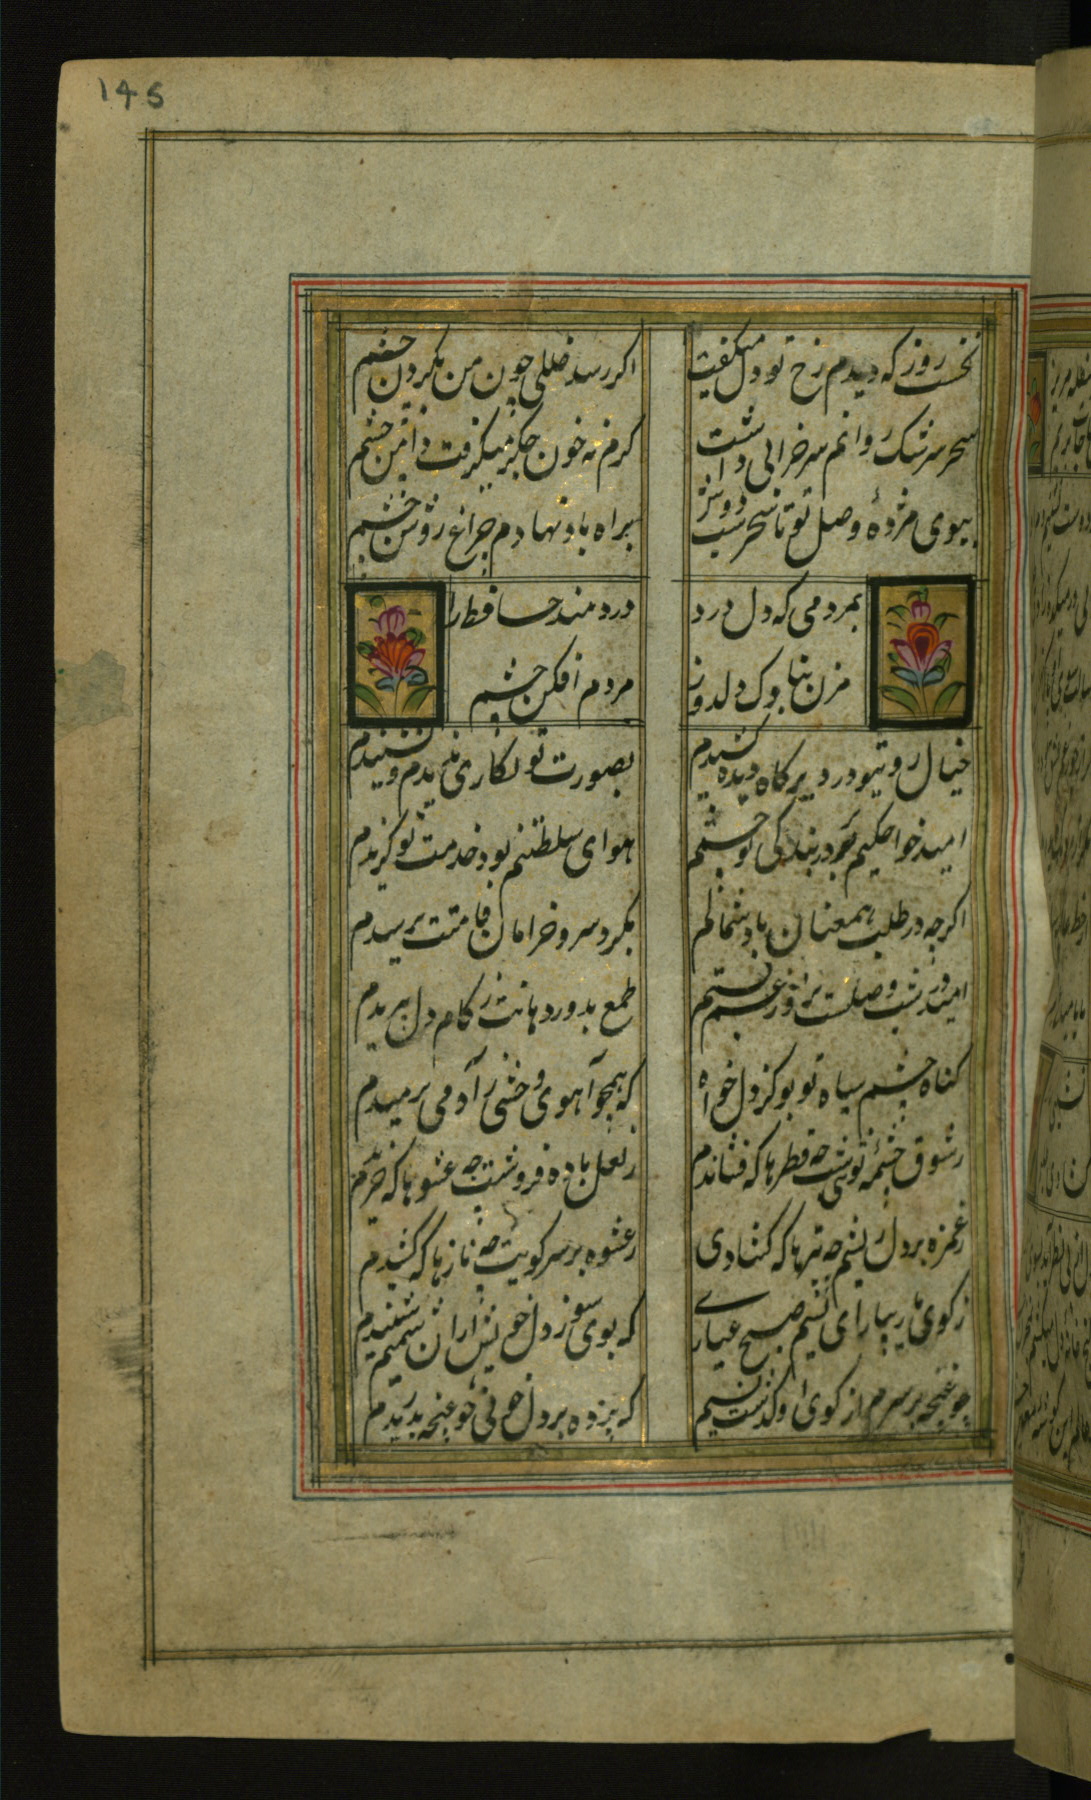 145
نخست روز که دیدم رخ تو دل میگفت
اگر رسد خللی چون من بگردن چشم
سحر سرشک روانم سر خرابی داشت
گرم نه خون جگر میگرفت دامن چشم
ببوی مژدهٔ وصل تو تا سحر شب دوش
براه باد نهادم چراغ روشن چشم
بمردمی که دل درد
دردمند حافظ را
مزن بناوک دلدوز
مردم افکن چشم
خیال روی تو در دیر کاه دیده کشیدم
بصورت تو نگاری ندیدم و نشنیدم
امید خواجکیم بود بندگی تو جستم
هوای سلطنتم بود خدمت تو گزیدم
اگرچه در طلبت همعنان باد شمالم
بگرد سرو خرامان قامتت نرسیدم
امید در شب وصلت بروز عمر نبستم
طمع بدور دهانت ز کام دل ببریدم
گناه چشم سیاه تو بو کز دل خواه
که همچو آهوی وحشی ز آدمی برمیدم
ز شوق چشمهٔ نوشت چه قطرها که فشاندم
ز لعل باده فروشت چه عشوها که خریدم
ز غمزه بر دل ریشم چه تیرها که گشادی
ز عشوه بر سر کویت چه نازها که کشیدم
ز کوی یار بیار ای نسیم صبح غباری
که بوی سوز دل خویش از آن شنیدم
چو غنچه بر سرم از کوی او گذشت نسیم
که پرده بر دل خونی چو غنچه بدریدم